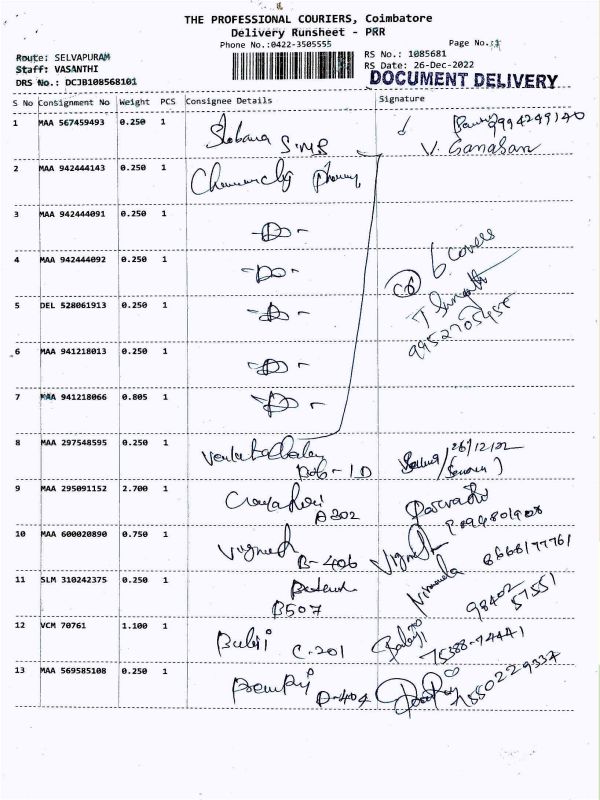 THE PROFESSIONAL COURIERS, Coimbatore
Delivery Runsheet - PRR
Phone No.:0422-3505555
Page No.:
Route: SELVAPURAM
Staff: VASANTHI
DRS No.: DCJB108568101
RS No.: 1085681
RS Date: 26-Dec-2022
DOCUMENT DELIVERY
S No Consignment No Weight PCS Consignee Details Signature
1 MAA 567459493 0.250 1 9994249140
V. Ganasan
2 MAA 942444143 0.250 1
3 MAA 942444091 0.250 1 -Do-
6 covers
4 MAA 942444092 0.250 1 -Do-
5 DEL 528061913 0.250 1 -Do-
6 MAA 941218013 0.250 1 -Do-
7 MAA 941218066 0.805 1 -Do-
8 MAA 297548595 0.250 1 26/12/22
9 MAA 295091152 2.700 1
A302
10 MAA 600020890 0.750 1 Vignesh B-406 Vignesh 8668177761
11 SLM 310242375 0.250 1 Nirmala 98402 57551
B507
12 VCM 70761 1.100 1 C-201 Balaji 75388-74441
13 MAA 569585108 0.250 1 D-404